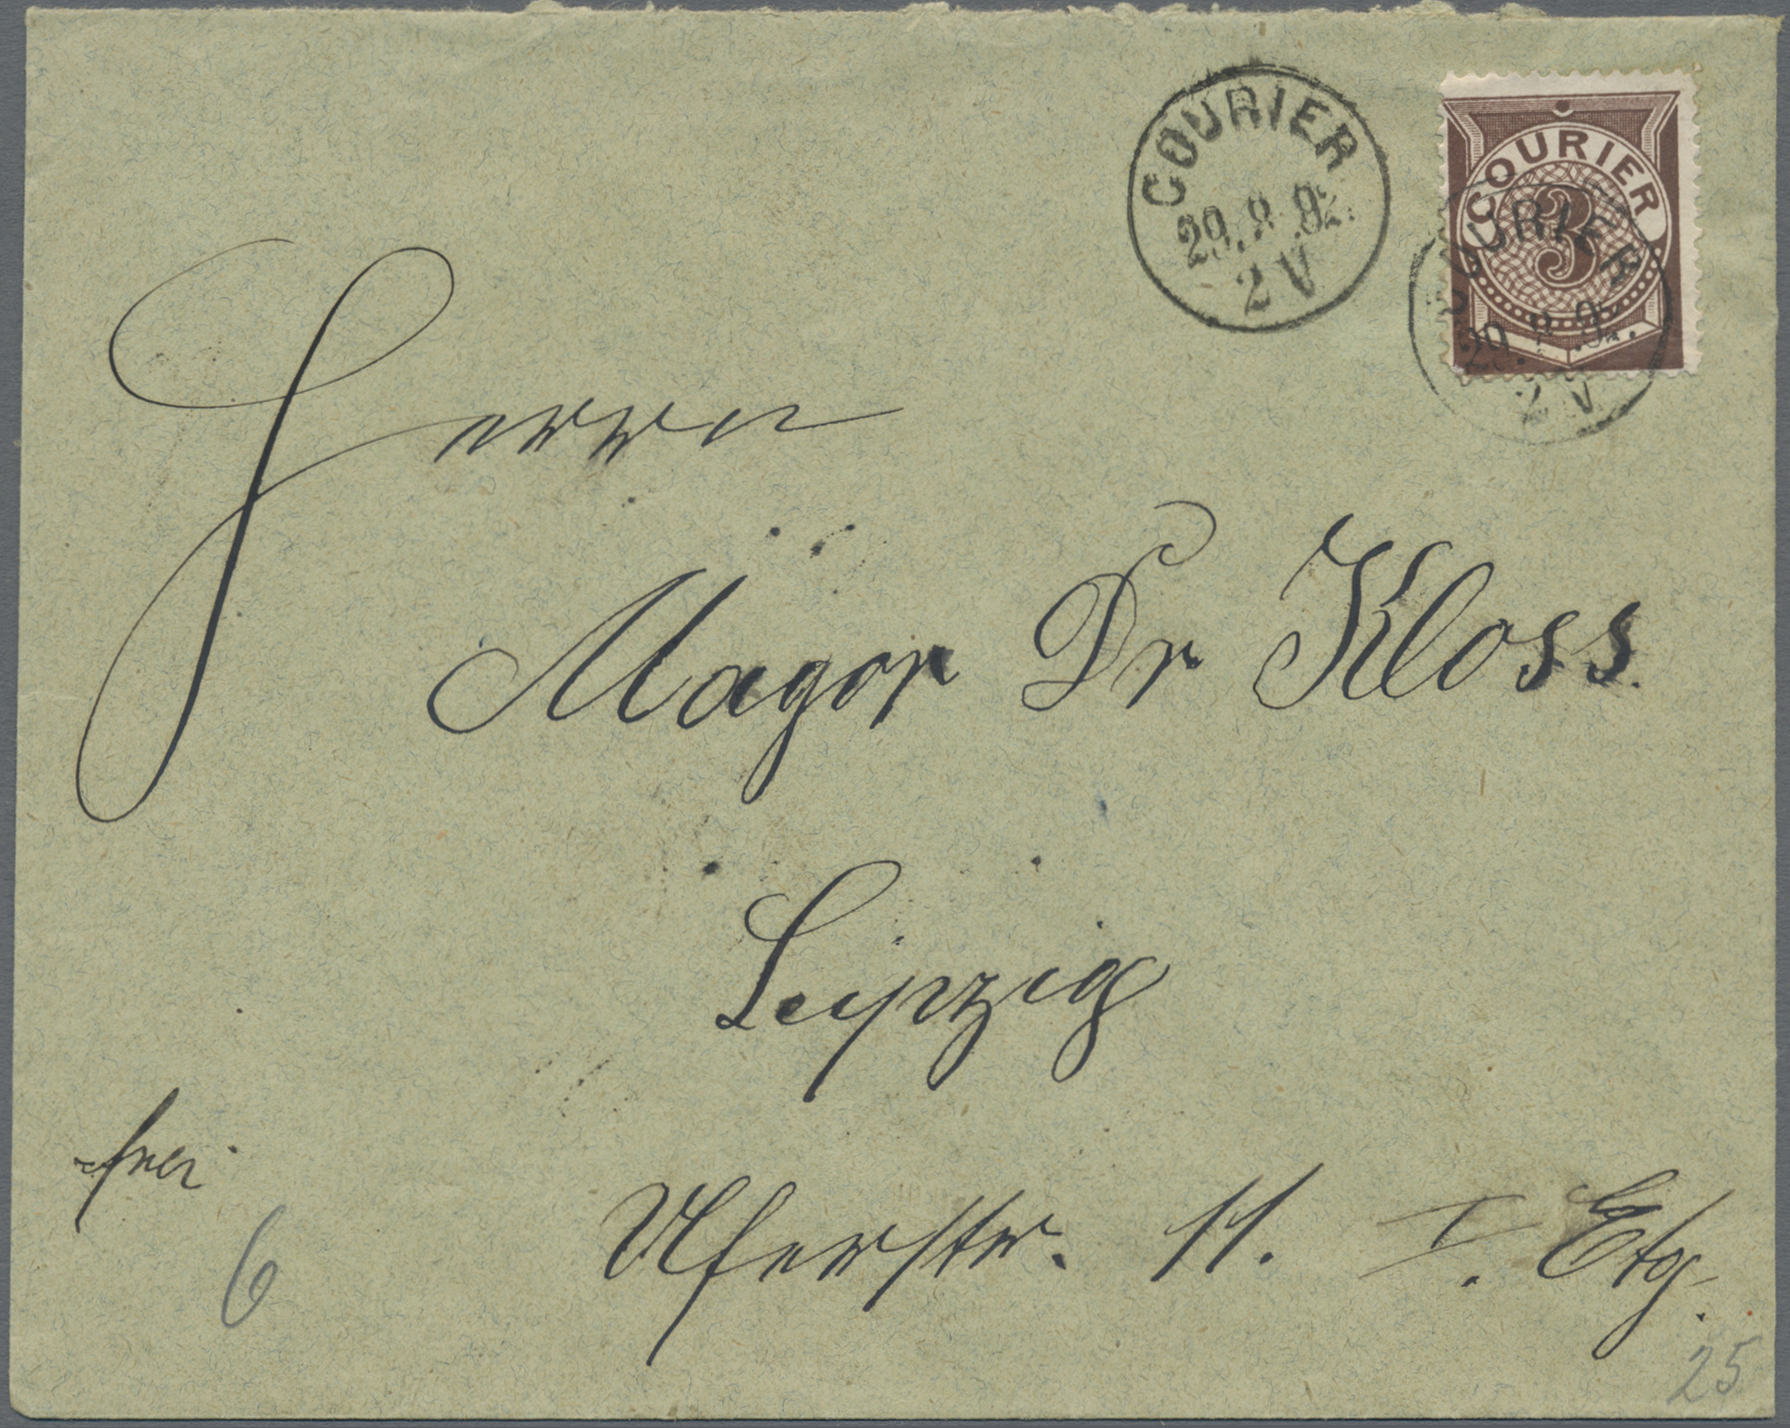 COURIER
29. 9. 92.
2 V
COURIER
3
COURIER
2 V
Herrn
Magor Dr Kloss
Leipzig
frei
Uferstr. 11. I. Etg.
6
25